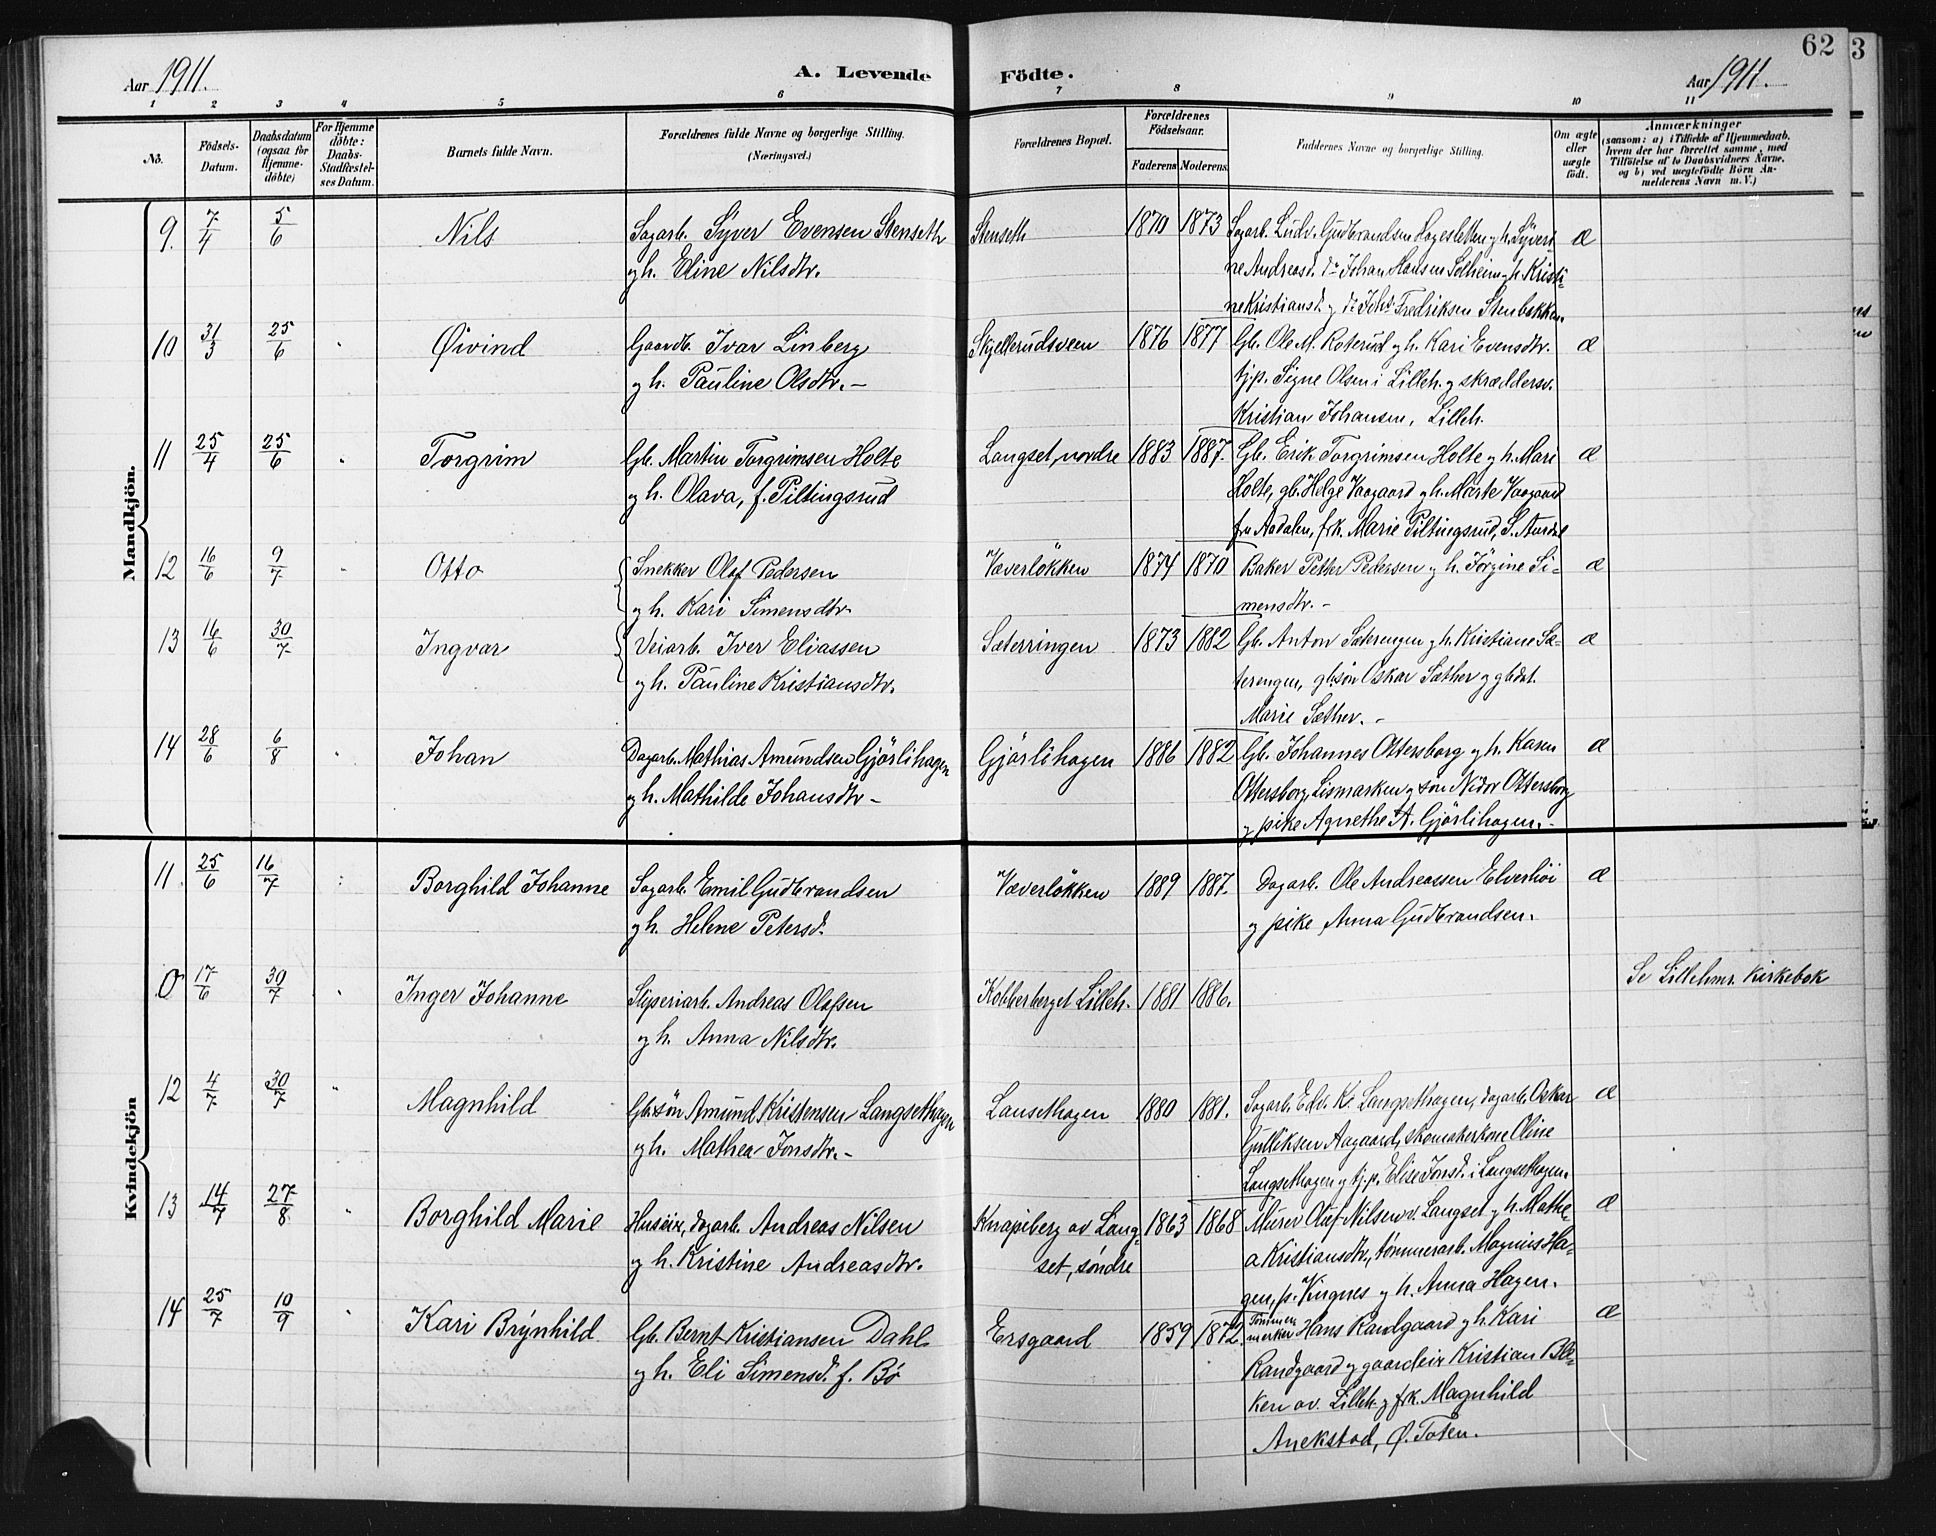 62
3
Aar 1911.
A. Levende Födte.
Aar 1911.
1 2 3 4 5 6 7 8 9 10 11
No.
Födsels-
Datum.
Daabsdatum
(ogsaa for
Hjemme-
döbte)
For Hjemme
döbte:
Daabs-
Stadfæstel-
ses Datum.
Barnets fulde Navn.
Forældrenes fulde Navne og borgerlige Stilling.
(Næringsvei.)
Forældrenes Bopæl.
Forældrenes
Födselsaar.
Faderens
Moderens.
Faddernes Navne og borgerlige Stilling.
Om ægte
eller
uægte
födt.
Anmærkninger
(saasom: a) i Tilfælde af Hjemmedaab,
hvem der har forrettet samme, med
Tilföielse af to Daabsvidners Navne.
og b) ved uægtefödte Börn An-
melderens Navn m. V.)
Mandkjön.
9. 7/4 5/6 Nils
Sagarb. Syver Evensen Stenseth
og h. Eline Nilsdtr.
Stenseth 1870 1873
Sagarb. Ludv. Gudbrandsen Hagesletten og h. Syveri-
ne Andreasd. do Johan Hansen Solheim og h. Kristi-
ne Kristiansd. og do Johs. Fredriksen Stenbakken.
Æ
10 31/3 25/6 " Øivind
Gaardb. Ivar Linberg
og h. Pauline Olsdtr. —
Skjellerudsveen 1876 1877
Gb. Ole M. Roterud og h. Kari Evensdtr.
tj.p. Signe Olsen i Lilleh. og skræddersv.
Kristian Johansen, Lilleh.
Æ
11 25/4 25/6 " Torgrim
Gb. Martin Torgrimsen Holte
og h. Olava, f. Piltingsrud
Langset, nordre 1883 1887.
Gb. Erik Torgrimsen Holte og h. Mari
Holte, gb. Helge Vaagaard og h. Marte Vaagaard
fra Aadalen, frk. Marie Piltingsrud, S. Aurdal
Æ
12 16/6 9/7 " Otto
Snekker Olaf Pedersen
og h. Kari Simensdtr.
Væverløkken 1874 1870
Baker Petter Pedersen og h. Jørgine Si-
mensdtr. —
Æ
13 16/6 30/7 Ingvar
Veiarb. Iver Eliassen
og h. Pauline Kristiansdtr.
Sæterringen 1873 1882
Gb. Anton Sæterengen og h. Kristiane Sæ-
terengen, gb.søn Oskar Sæther og gb.dat.
Marie Sæther. —
Æ
14 28/6 6/8 " Johan
Dagarb. Mathias Amundsen Gjörlihagen
og h. Mathilde Johansdtr —
Gjörlihagen 1886 1882
Gb. Johannes Ottersborg og h. Karen
Ottersborg, Lismarken og søn Nidor Ottersborg
og pike Agnethe A. Gjörlihagen. —
Æ
Kvindekjön
11. 25/6 16/7 " Borghild Johanne
Sagarb. Emil Gudbrandsen
og h. Helene Petersd.
Væverløkken 1889 1887.
Dagarb. Ole Andreassen Elverhöi
og pike Anna Gudbrandsen.
Æ
0 17/6 30/7 " Inger Johanne
Sliperiarb. Andreas Olafsen
og h. Anna Nilsdtr.
Kobberberget Lilleh. 1881 1886.
Se Lillehmr. Kirkebok
12 4/7 30/7 " Magnhild
Gb.søn Amund Kristensen Langsethagen
og h. Mathea Jonsdtr. —
Lansethagen 1880 1881.
Sagarb. Edv. K. Langsethagen, dagarb. Oskar
Gulliksen Aagaard, skomakerkone Oline
Langsethagen og tj.p. Elise Jonsd. i Langsethagen.
Æ
13 14/7 27/8. " Borghild Marie
Huseier, dagarb. Andreas Nilsen
og h. Kristine Andreasdtr.
Knapiberg av Lang-
set, søndre 1863 1868
Murer Olaf Nilsen v. Langset og h. Mathe-
a Kristiansdtr., tømmerarb. Magnus Ha-
gen, p. Ringnes og h. Anna Hagen.
Æ
14 25/7 10/9 " Kari Brynhild
Gb. Bernt Kristiansen Dahl
og h. Eli Simensd. f. Bø
Ersgaard 1859 1872.
Tømmer-
merker Hans Randgaard og h. Kari
Randgaard og gaardeier Kristian Bæk-
ken av Lilleh. og frk. Magnhild
Anekstad, Ø. Toten.
Æ